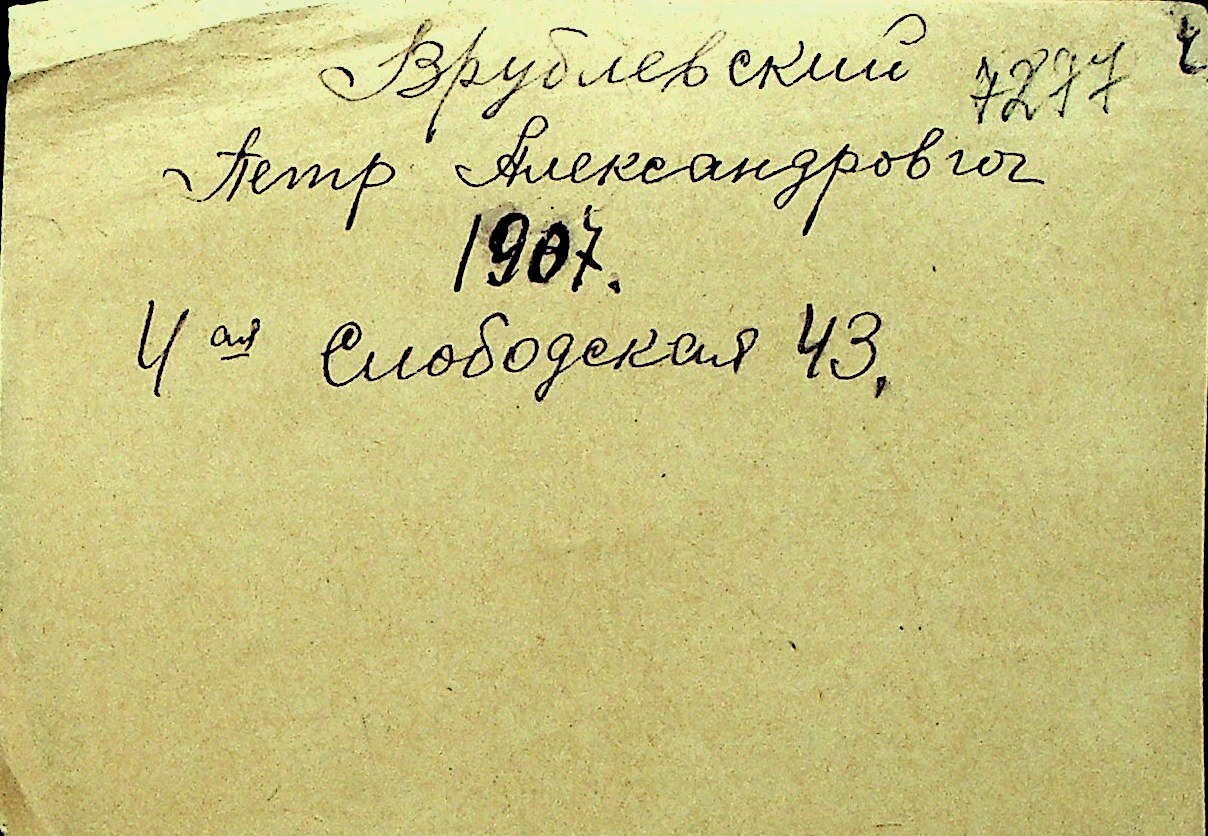 Врублевский 7277
Петр Александрович
1907.
4ая Слободская 43,